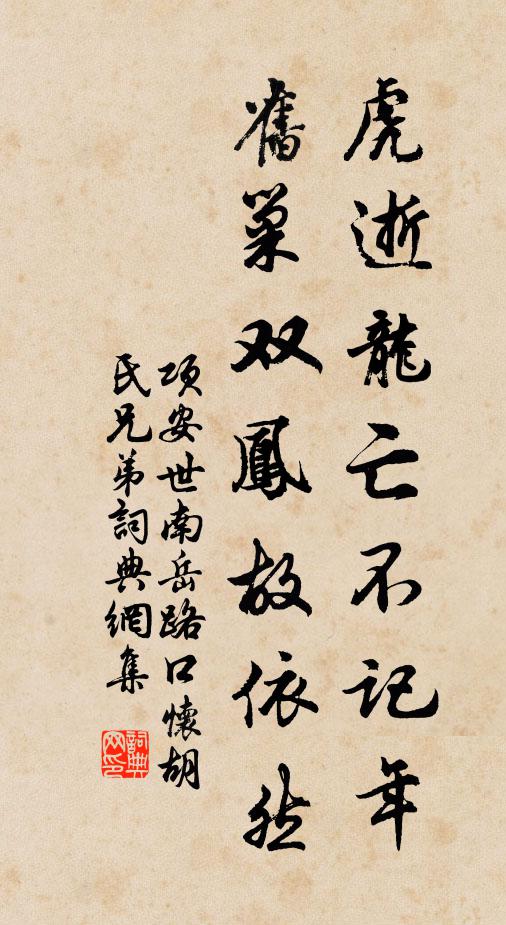 虎逝龍亡不记年
舊巢双鳳故依然
项安世南岳路口懷胡
氏兄弟詞典網集
詞典
网